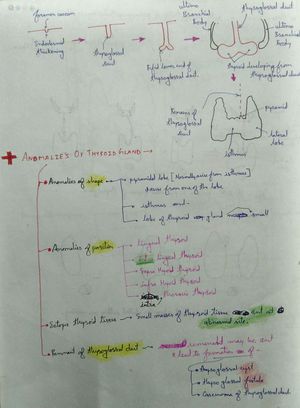 foramen caecum
Endodermal thickening
thyroglossal duct
Bifid lower end of thyroglossal duct.
ultimo Branchial body
thyroglossal duct
ultimo Branchial body
thyroid developing from thyroglossal duct
Remains of thyroglossal duct
pyramid
lateral lobe
isthmus
ANOMALIES OF THYROID GLAND
Anomalies of shape
pyramidal lobe [Normally arise from isthmus]
arise from one of the lobe
isthmus
lobe of thyroid gland small
Anomalies of position
lingual thyroid
lingual thyroid
Supra Hyoid thyroid
Infra Hyoid thyroid
Intra Thoracic thyroid
Ectopic thyroid tissue → Small masses of thyroid tissue at
abnormal site.
Remnant of thyroglossal duct
may be
lead to formation of -
thyroglossal cyst
thyroglossal fistula
Carcinoma of thyroglossal duct.